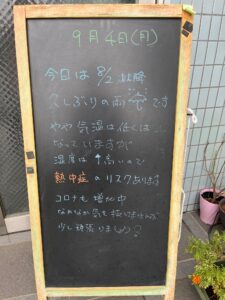 9月4日(月)
今日は 8/2 以降
久しぶりの雨 です
やや気温は低くは
なっていますが
湿度は↑高いので
熱中症 のリスクあります
コロナも 増加中
なかなか気も抜けませんが
少し頑張りましょう!